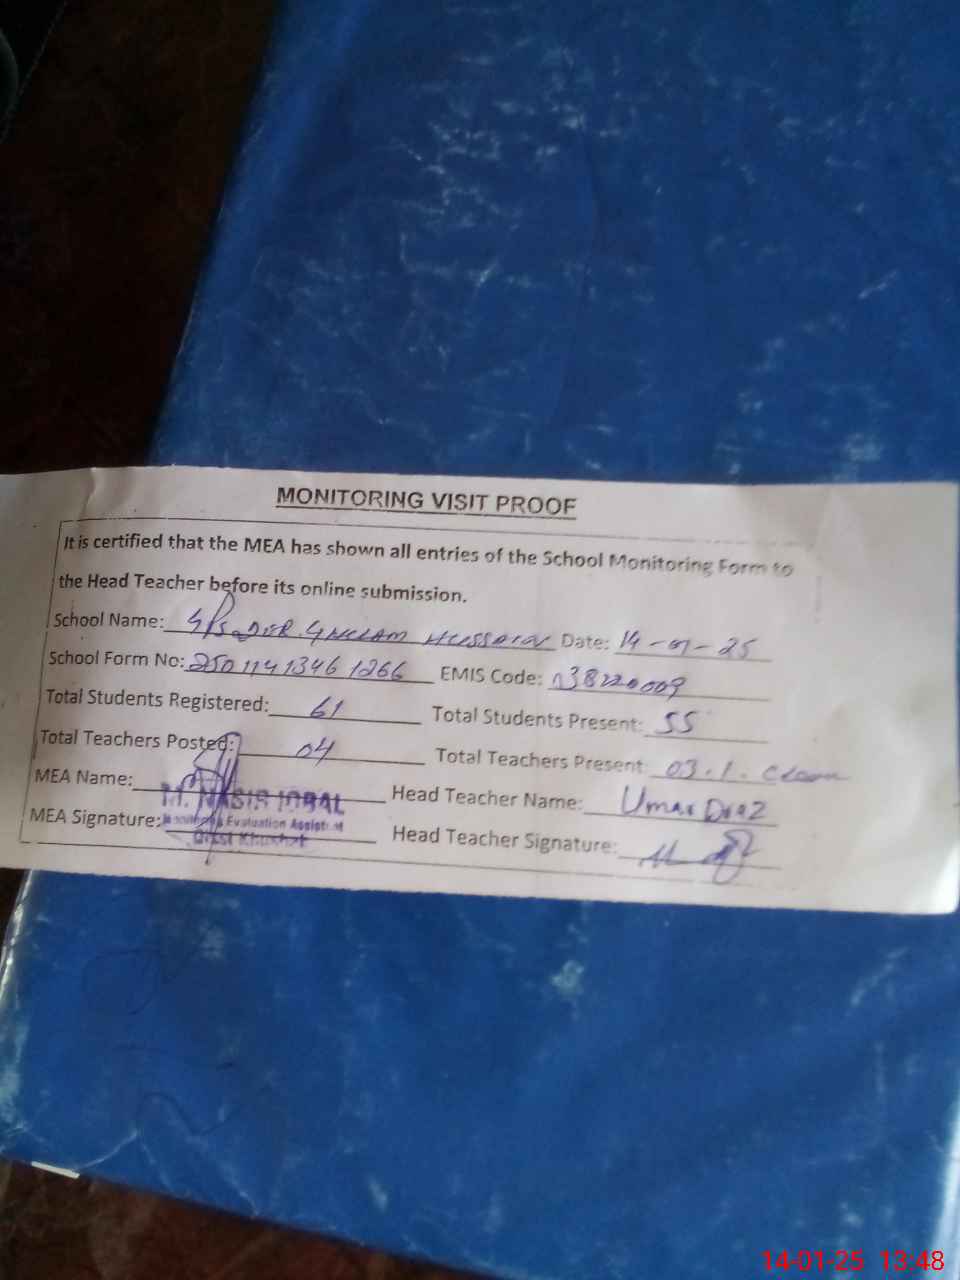 MONITORING VISIT PROOF
It is certified that the MEA has shown all entries of the School Monitoring Form to
the Head Teacher before its online submission.
School Name: GPS DER. GHULAM HUSSAIN Date: 14-01-25
School Form No: 250114 1346 1266 EMIS Code: 38220009
Total Students Registered: 61 Total Students Present: 55
Total Teachers Posted: 04 Total Teachers Present: 03.1.
MEA Name: M. NASIR IQBAL Head Teacher Name: Umar Draz
MEA Signature: Monitoring Evaluation Assistant Head Teacher Signature:
Distt Khushab
14-01-25 13:48